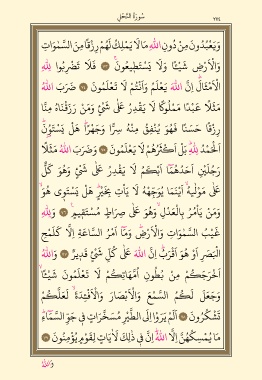 سُورَةُ النَّحْلِ
٢٧٤
وَيَعْبُدُونَ مِنْ دُونِ اللّٰهِ مَا لَا يَمْلِكُ لَهُمْ رِزْقًا مِنَ السَّمٰوَاتِ
وَالْاَرْضِ شَيْئًا وَلَا يَسْتَطِيعُونَۚ ﴿٧٣﴾ فَلَا تَضْرِبُوا لِلّٰهِ
الْاَمْثَالَۜ اِنَّ اللّٰهَ يَعْلَمُ وَاَنْتُمْ لَا تَعْلَمُونَ ﴿٧٤﴾ ضَرَبَ اللّٰهُ
مَثَلًا عَبْدًا مَمْلُوكًا لَا يَقْدِرُ عَلٰى شَيْءٍ وَمَنْ رَزَقْنَاهُ مِنَّا
رِزْقًا حَسَنًا فَهُوَ يُنْفِقُ مِنْهُ سِرًّا وَجَهْرًاۜ هَلْ يَسْتَوُ۫نَۜ
اَلْحَمْدُ لِلّٰهِۜ بَلْ اَكْثَرُهُمْ لَا يَعْلَمُونَ ﴿٧٥﴾ وَضَرَبَ اللّٰهُ مَثَلًا
رَجُلَيْنِ اَحَدُهُمَٓا اَبْكَمُ لَا يَقْدِرُ عَلٰى شَيْءٍ وَهُوَ كَلٌّ
عَلٰى مَوْلٰيهُۙ اَيْنَمَا يُوَجِّهْهُ لَا يَأْتِ بِخَيْرٍۜ هَلْ يَسْتَوِي هُوَۙ
وَمَنْ يَأْمُرُ بِالْعَدْلِۙ وَهُوَ عَلٰى صِرَاطٍ مُسْتَقِيمٍ۟ ﴿٧٦﴾ وَلِلّٰهِ
غَيْبُ السَّمٰوَاتِ وَالْاَرْضِۜ وَمَٓا اَمْرُ السَّاعَةِ اِلَّا كَلَمْحِ
الْبَصَرِ اَوْ هُوَ اَقْرَبُۜ اِنَّ اللّٰهَ عَلٰى كُلِّ شَيْءٍ قَدِيرٌ ﴿٧٧﴾ وَاللّٰهُ
اَخْرَجَكُمْ مِنْ بُطُونِ اُمَّهَاتِكُمْ لَا تَعْلَمُونَ شَيْئًاۙ
وَجَعَلَ لَكُمُ السَّمْعَ وَالْاَبْصَارَ وَالْاَفْـِٔدَةَۙ لَعَلَّكُمْ
تَشْكُرُونَ ﴿٧٨﴾ اَلَمْ يَرَوْا اِلَى الطَّيْرِ مُسَخَّرَاتٍ فِي جَوِّ السَّمَٓاءِۜ
مَا يُمْسِكُهُنَّ اِلَّا اللّٰهُۜ اِنَّ فِي ذٰلِكَ لَاٰيَاتٍ لِقَوْمٍ يُؤْمِنُونَ ﴿٧٩﴾
وَاللّٰهُ